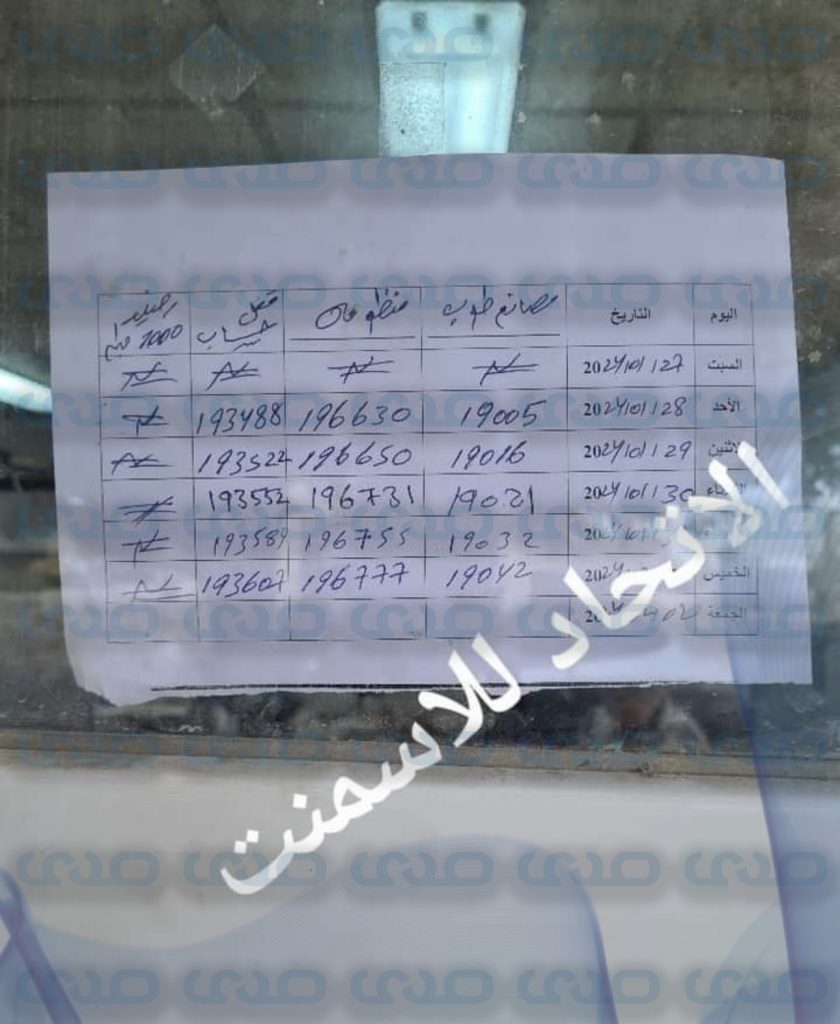 اليوم التاريخ مصانع طوب منظومات قفل حساب رصيد 2000 طن
السبت 2024/01/27
الأحد 2024/01/28 19005 196630 193488
الاثنين 2024/01/29 19016 196650 193522
2024/01/30 19021 196731 193552
19032 196755 193589
الخميس 19042 196777 193607
الجمعة
الاتحاد للاسمنت
صدى